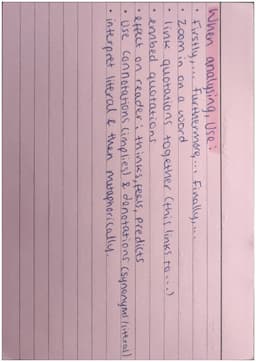 When analysing, use:
• Firstly,... Furthermore... Finally,...
• Zoom in on a word
• link quotations together (this links to...)
• embed quotations
• effect on reader: thinks, feels, predicts
• Use connotations (implies) & denotations (synonym/litral)
• interpret literal & then metaphorically.